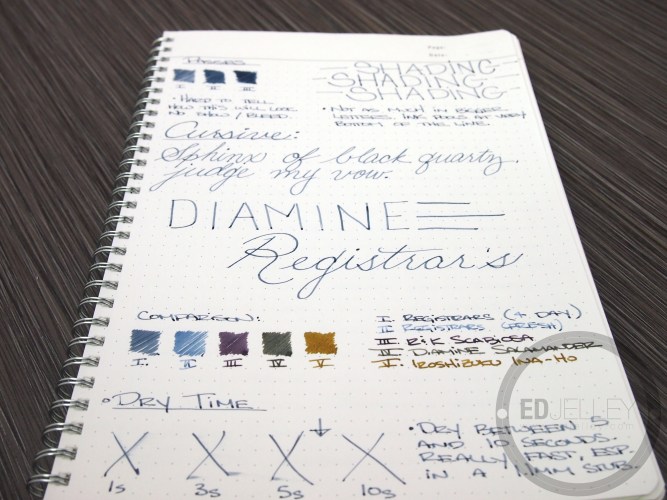 Page:
Date:
PASSES
SHADING
SHADING
SHADING
I II III
• HARD TO TELL
HOW THIS WILL LOOK
NO SHOW / BLEED.
• NOT AS MUCH IN BIGGER
LETTERS, INK POOLS AT VERY
BOTTOM OF THE LINE.
Cursive:
Sphinx of black quartz,
judge my vow.
DIAMINE
Registrar's
COMPARISON:
I. II III IV V
I. REGISTRARS (+ DAY)
II REGISTRARS (FRESH)
III. R&K SCABIOSA
IV DIAMINE SALAMANDER
V. IROSHIZUKU INA-HO
• DRY TIME
1s 3s 5s 10s
• DRY BETWEEN 5
AND 10 SECONDS.
REALLY FAST, ESP.
IN A 1.1MM STUB.
EDJELLEY